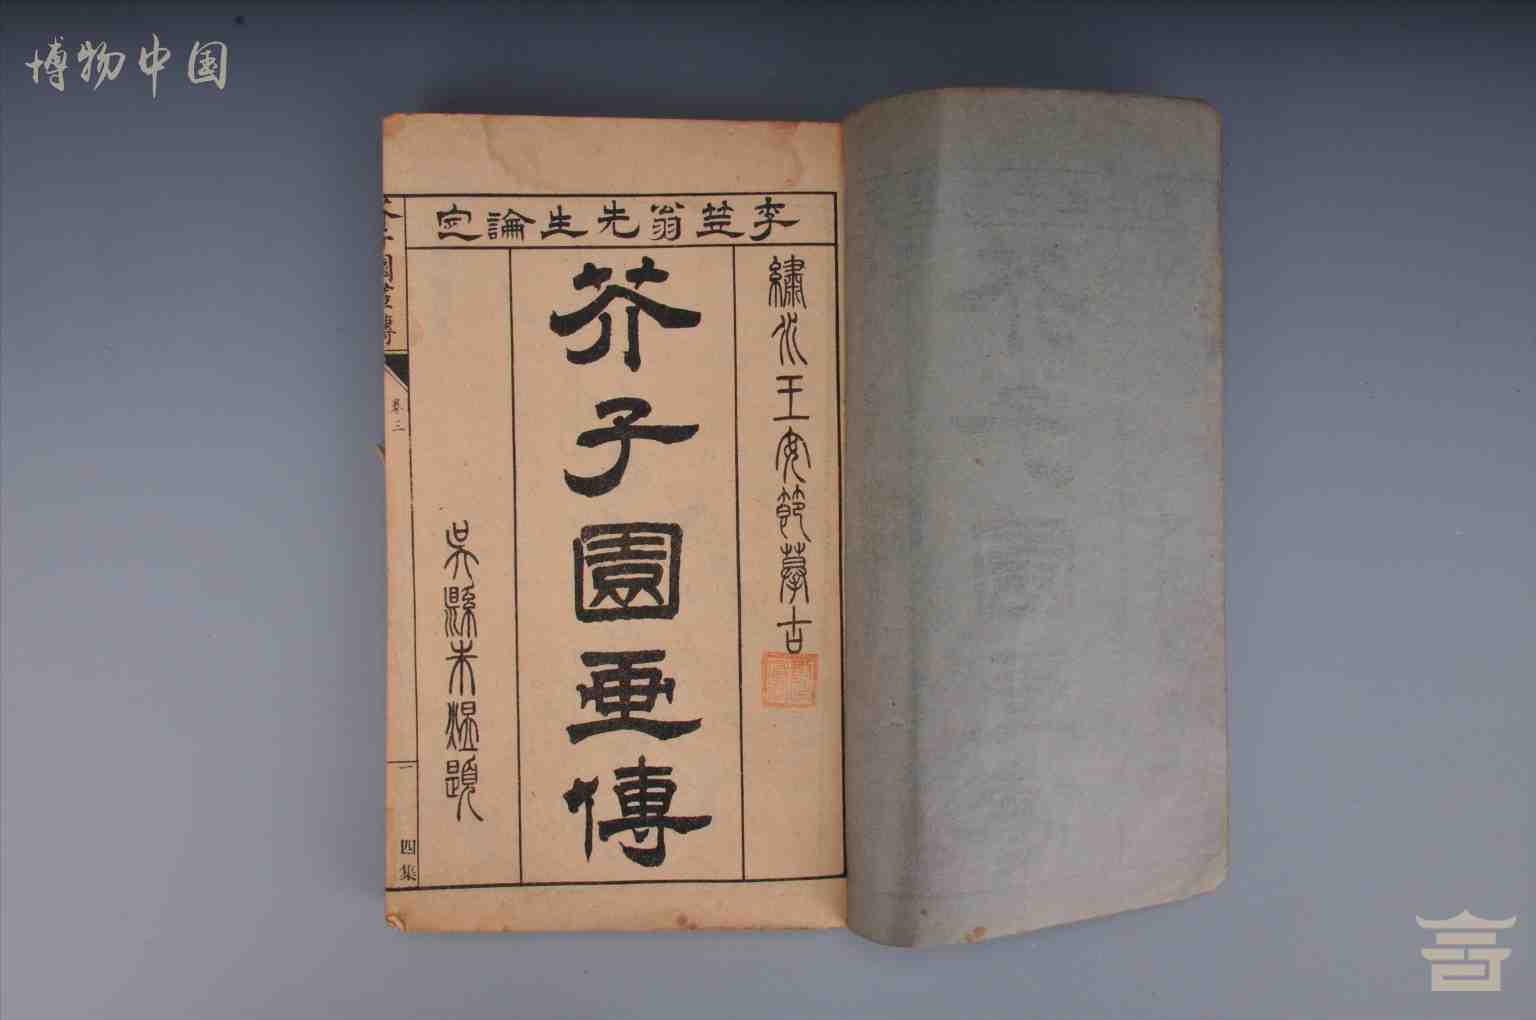 博物中国
李笠翁先生論定
繡水王安節摹古
芥子園画傳
吳縣朱煜題
卷三
一
四集